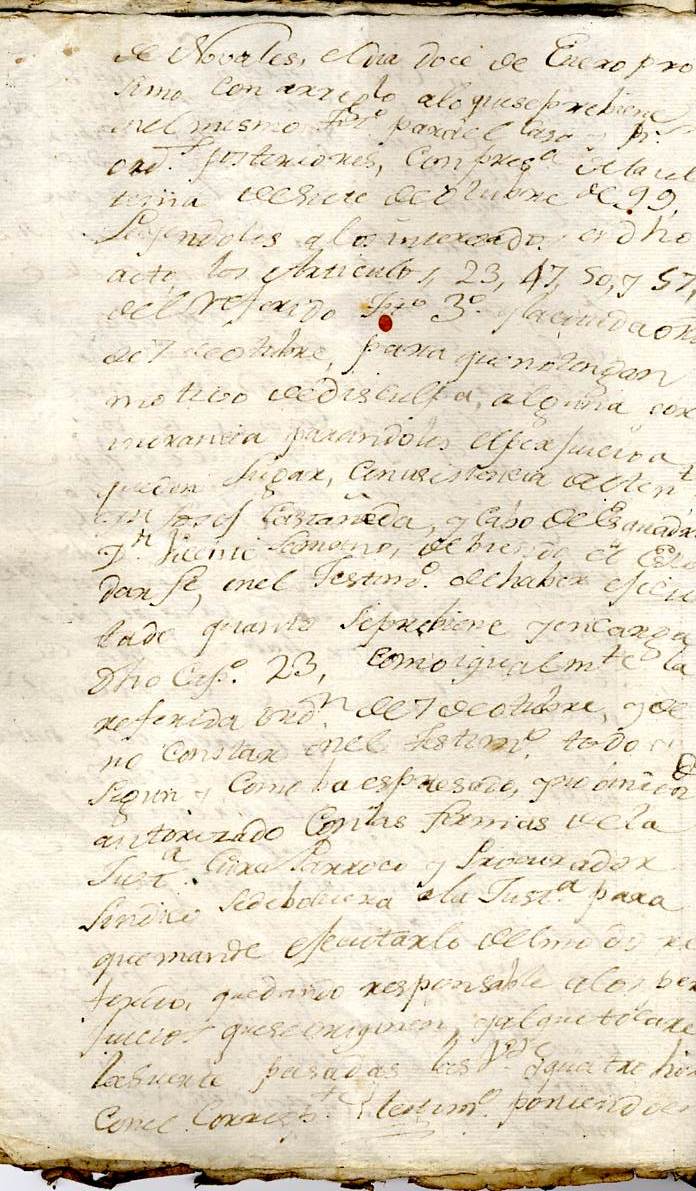 de Novales, el dia doce de Enero pro
simo con arreglo alo que se prebiene
en el mismo para el caso y pr.
ordˢ posteriores, con presᵃ de la
de siete de Octubre de 99,
Leyendoles a los interesados en dho
acto, los Articulos, 23, 47, 50, y 57,
del referido 3º y la citada orn
de 7 de octubre, para que no tengan
motivo de disculpa, alguna por
inorancia parandoles el perjuicio a
que den lugar, con asistencia del
Josef Castañeda, y Cabo de Esquadra
Dⁿ Vicente debiendo el
dar fe, en el Testimº. de haber ejecu
tado quanto se prebiene y encarga
Dho Capº. 23, como igualmᵗᵉ la
referida ordⁿ de 7 de octubre, y de
no constar en el testimº. todo
segun y como ba espresado, y
autorizado con las firmas de la
Justᵃ. Cura Parroco y Procurador
Sindico se debolvera a la Justᵃ para
que mande ejecutarlo del modo re
ferido, quedando responsable a los per
juicios que se originen, y al que tocare
la suerte pasadas las y quatro hor
con el testimº. poniendo en